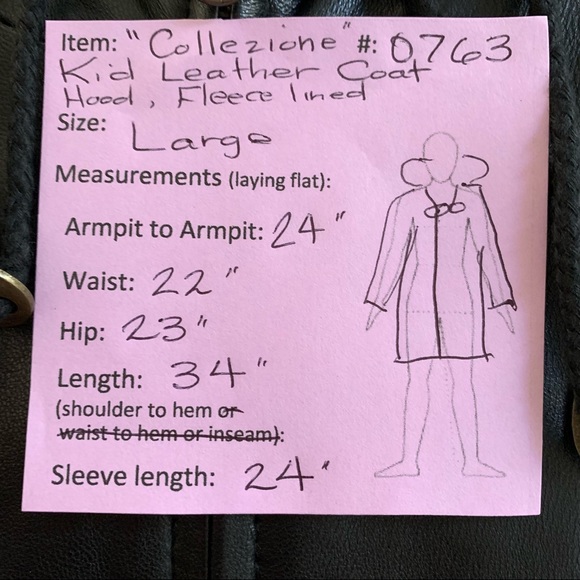 Item: "Collezione" #: 0763
Kid Leather Coat
Hood, Fleece lined
Size: Large
Measurements (laying flat):
Armpit to Armpit: 24"
Waist: 22"
Hip: 23"
Length: 34"
(shoulder to hem or
waist to hem or inseam):
Sleeve length: 24"